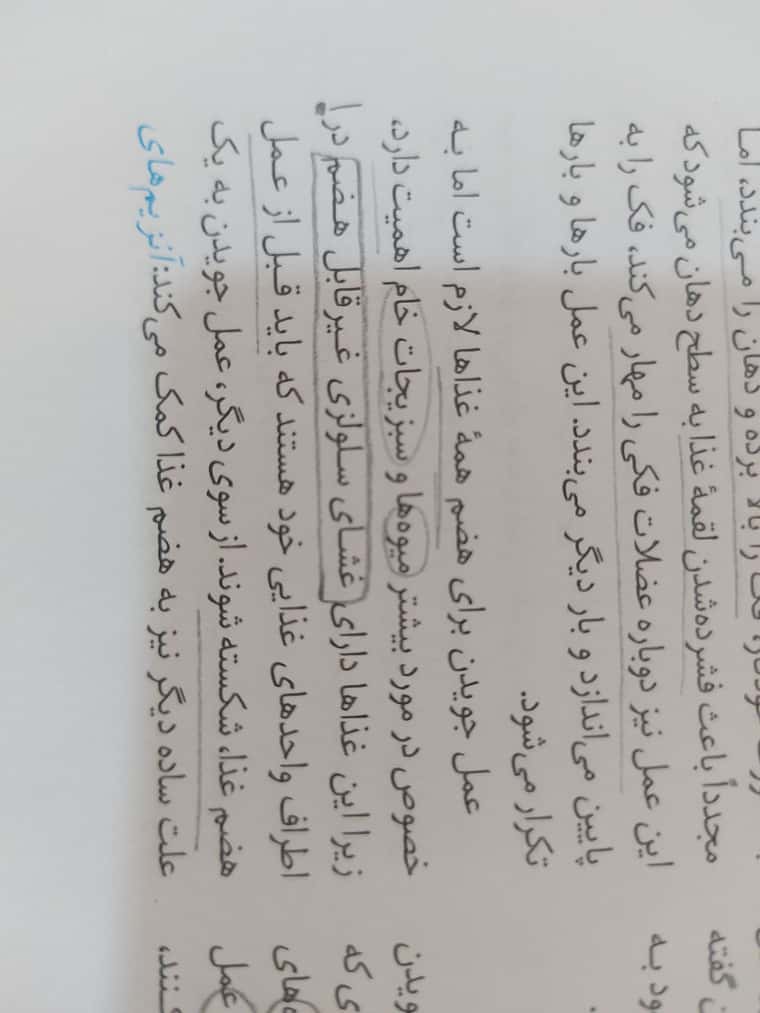 فک را بالا برده و دهان را می‌بندد، اما
مجدداً باعث فشرده‌شدن لقمهٔ غذا به سطح دهان می‌شود که
این عمل نیز دوباره عضلات فکی را مهار می‌کند، فک را به
پایین می‌اندازد و بار دیگر می‌بندد. این عمل بارها و بارها
تکرار می‌شود.
عمل جویدن برای هضم همهٔ غذاها لازم است اما به
خصوص در مورد بیشتر میوه‌ها و سبزیجات خام اهمیت دارد،
زیرا این غذاها دارای غشای سلولزی غیرقابل هضم در
اطراف واحدهای غذایی خود هستند که باید قبل از عمل
هضم غذا، شکسته شوند. از سوی دیگر، عمل جویدن به یک
علت ساده دیگر نیز به هضم غذا کمک می‌کند: آنزیم‌های
گفته
به
که
عمل